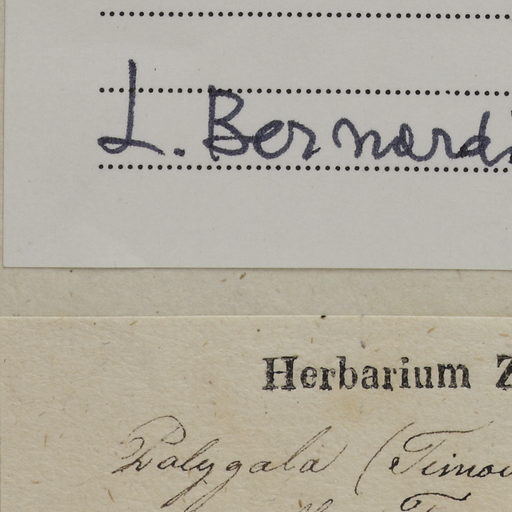 L. Bernardi
Herbarium Z
Polygala (Timou